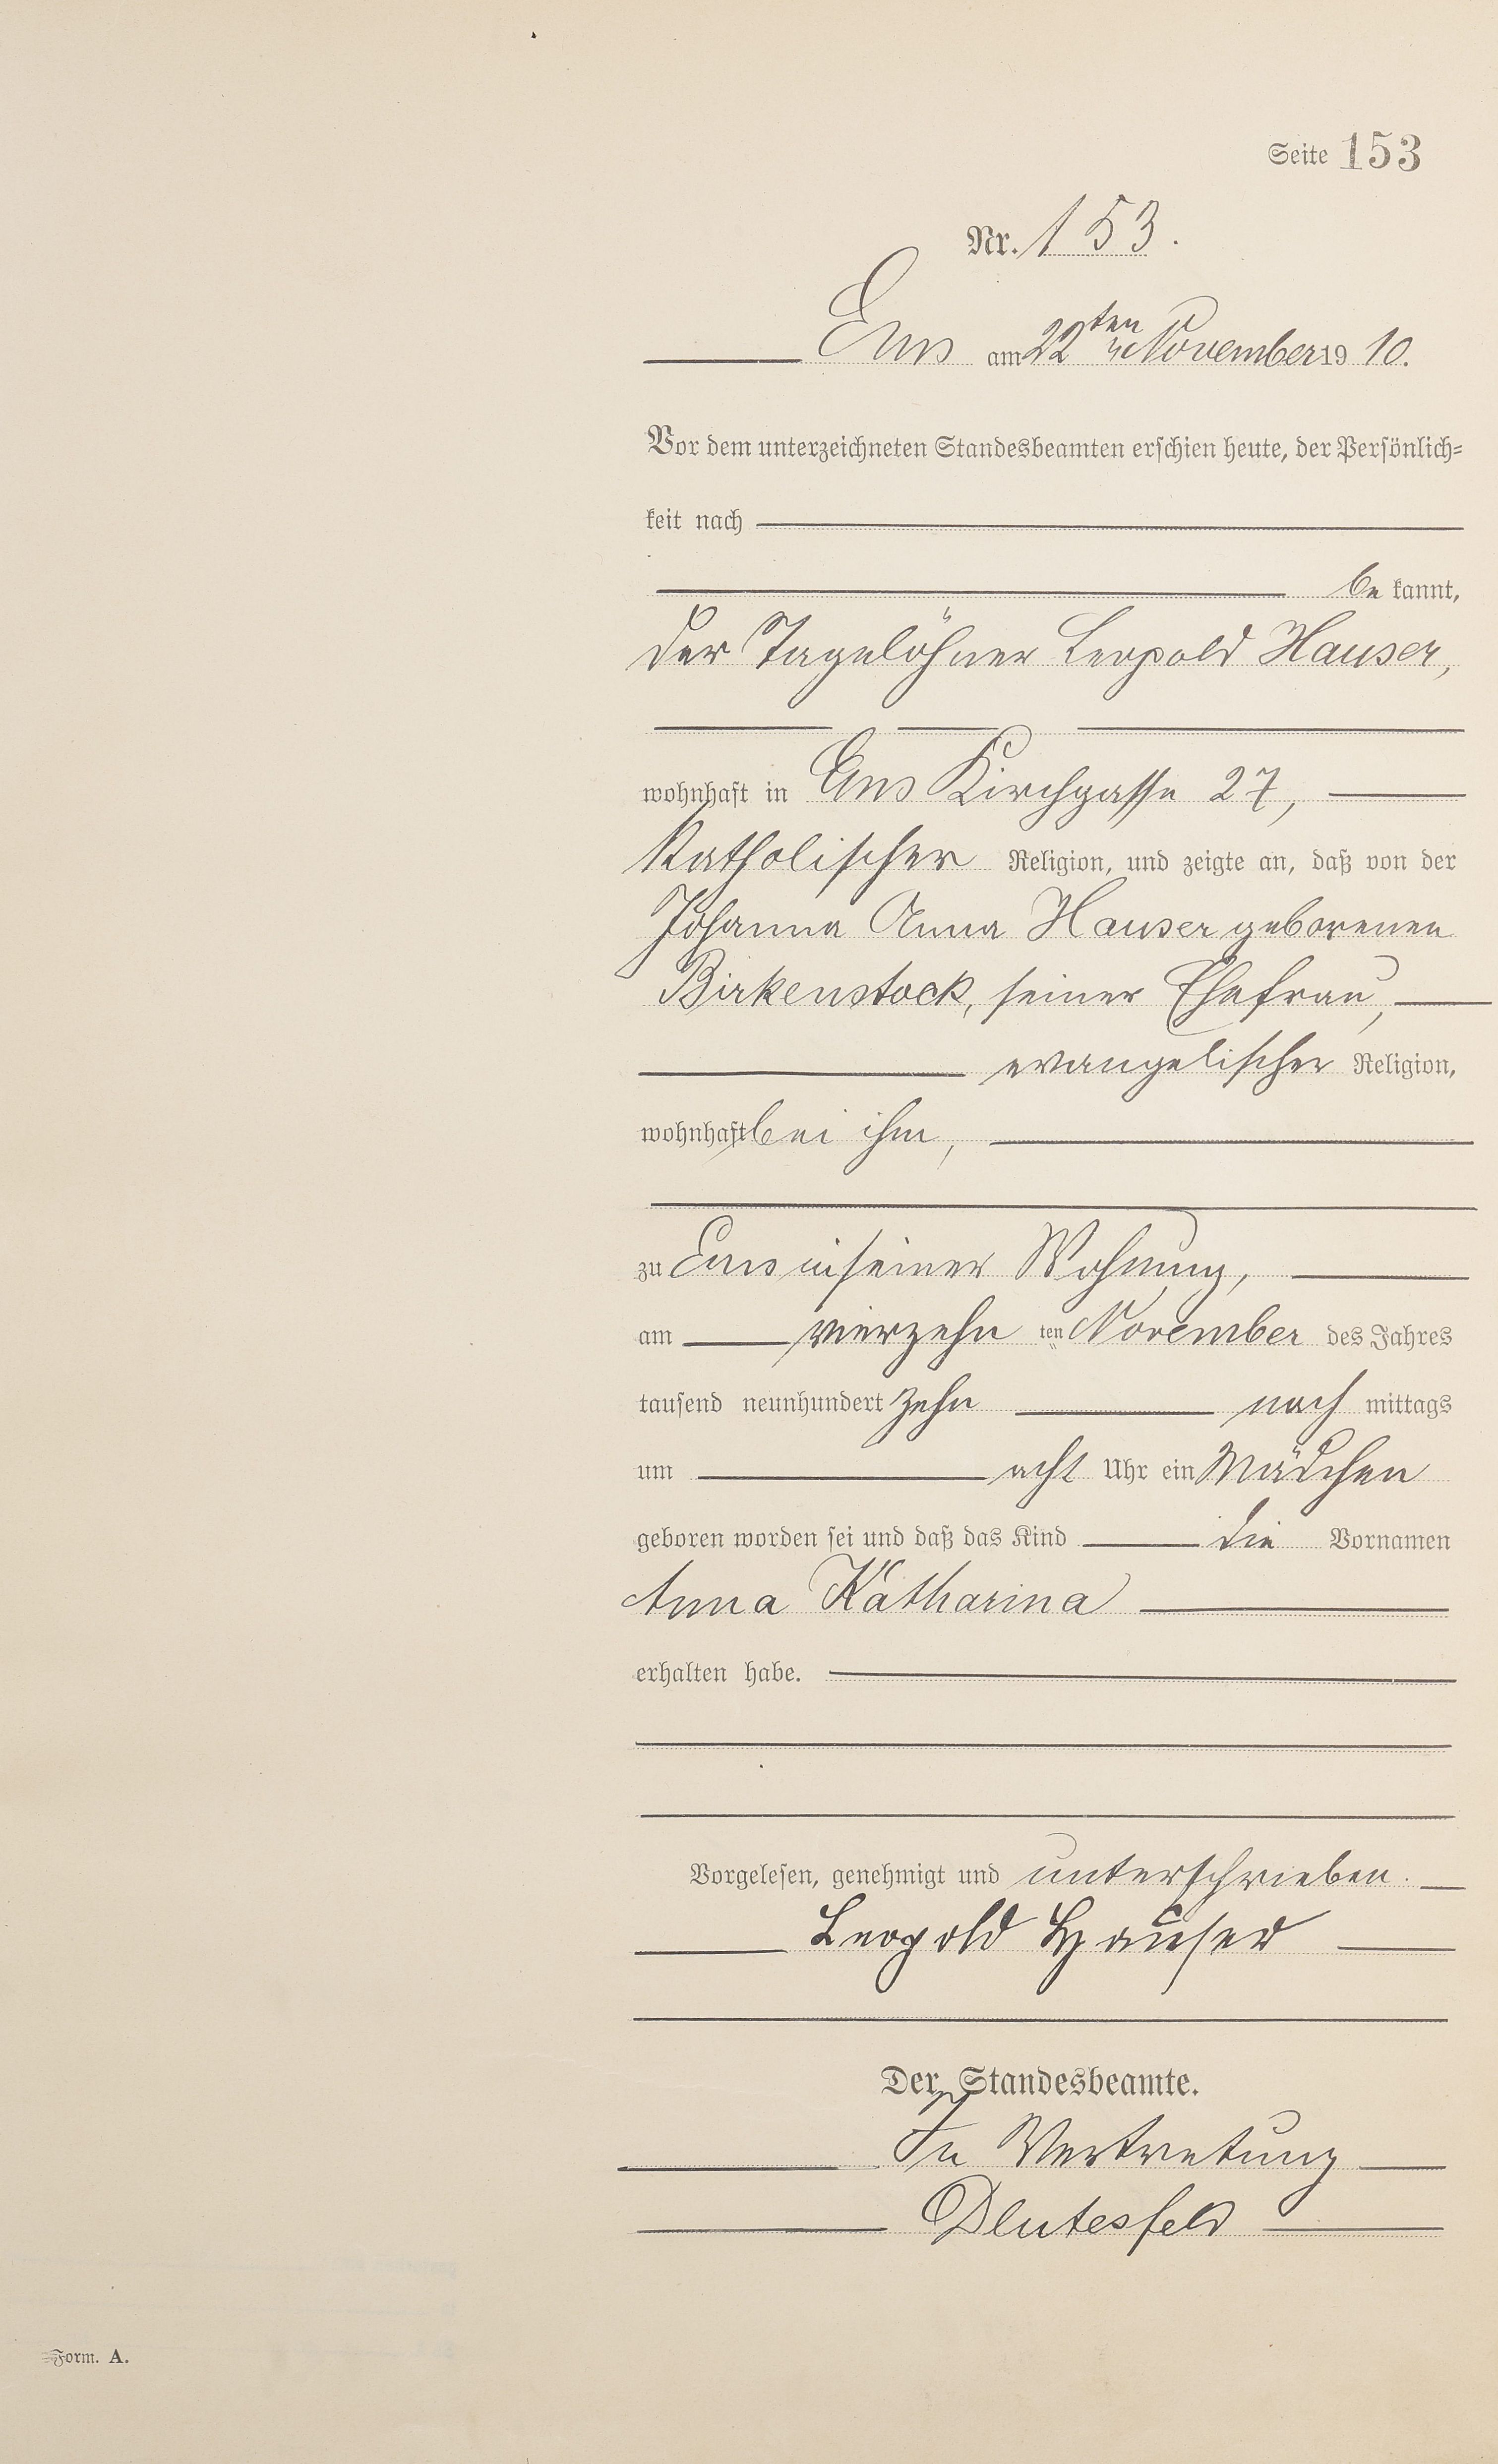 Seite 153
Nr. 153.
Ems am 22ten November 1910.
Vor dem unterzeichneten Standesbeamten erschien heute, der Persönlich-
keit nach
be kannt,
der Tagelöhner Leopold Hauser,
wohnhaft in Ems Kirchgasse 27,
katholischer Religion, und zeigte an, daß von der
Johanna Anna Hauser geborenen
Birkenstock, seiner Ehefrau,
evangelischer Religion,
wohnhaft bei ihm,
zu Ems in seiner Wohnung,
am vierzehn ten November des Jahres
tausend neunhundert zehn nach mittags
um acht Uhr ein Mädchen
geboren worden sei und daß das Kind die Vornamen
Anna Katharina
erhalten habe.
Vorgelesen, genehmigt und unterschrieben.
Leopold Hauser
Der Standesbeamte.
In Vertretung
Form. A.